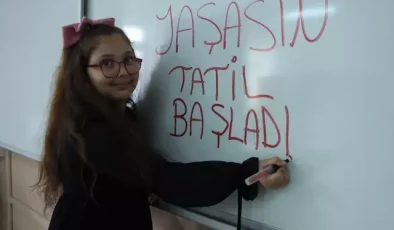 YAŞASIN
TATİL
BAŞLADI